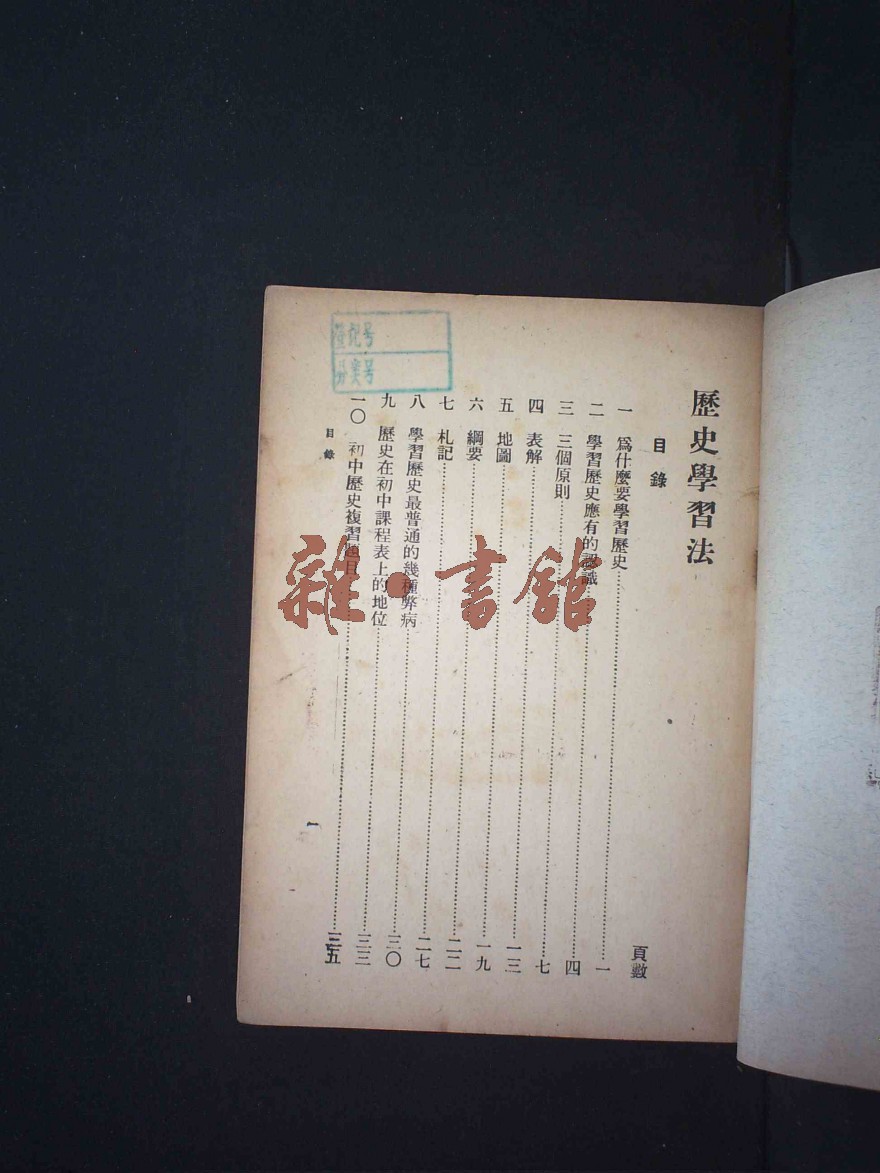 歷史學習法
目錄
頁數
一 爲什麼要學習歷史……一
二 學習歷史應有的認識……四
三 三個原則……七
四 表解……一三
五 地圖……一九
六 綱要……二二
七 札記……二七
八 學習歷史最普通的幾種弊病……三〇
九 歷史在初中課程表上的地位……三三
一〇 初中歷史複習題目……三五
目錄
一
登记号
分类号
雜·書館